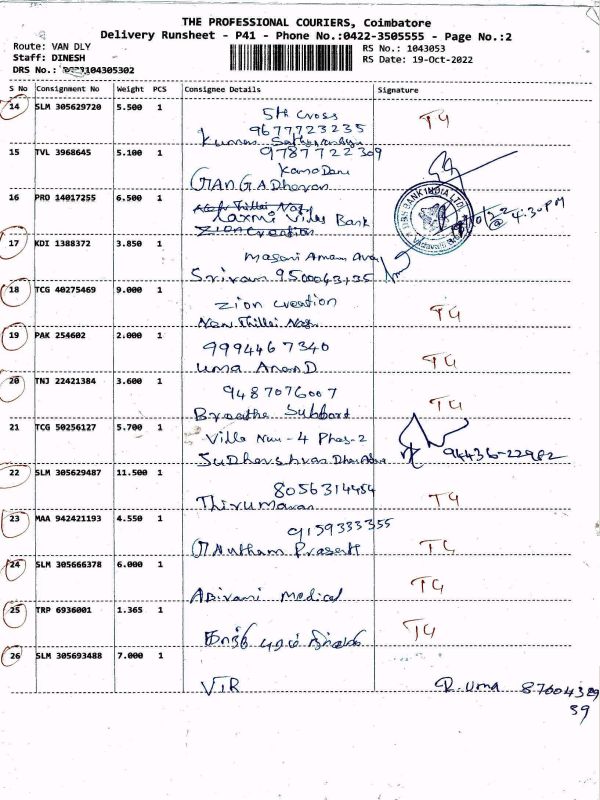 THE PROFESSIONAL COURIERS, Coimbatore
Delivery Runsheet - P41 - Phone No.:0422-3505555 - Page No.:2
Route: VAN DLY
Staff: DINESH
DRS No.:
RS No.: 1043053
RS Date: 19-Oct-2022
S No Consignment No Weight PCS Consignee Details Signature
14 SLM 305629720 5.500 1
5th Cross
9677723235
T4
15 TVL 3968645 5.100 1
9787722309
16 PRO 14017255 6.500 1
Laxmi Vilas Bank
Zion Creation
@ 4:30PM
17 KDI 1388372 3.850 1
Masani Amam
Sriram 9500043135
18 TCG 40275469 9.000 1
Zion creation
New Thillai Nagr
T4
19 PAK 254602 2.000 1
9994467340
Uma Anand
T4
20 TNJ 22421384 3.600 1
9487076007
Breathe Subbord
T4
21 TCG 50256127 5.700 1
Villa Num-4 Phas-2
94436-22982
22 SLM 305629487 11.500 1
8056314454
Thirumaran
T4
23 MAA 942421193 4.550 1
9159333355
Gautham Prasath
T4
24 SLM 305666378 6.000 1
Abirami Medical
T4
25 TRP 6936001 1.365 1
T4
26 SLM 305693488 7.000 1
VTR
R. Uma 87604329
59